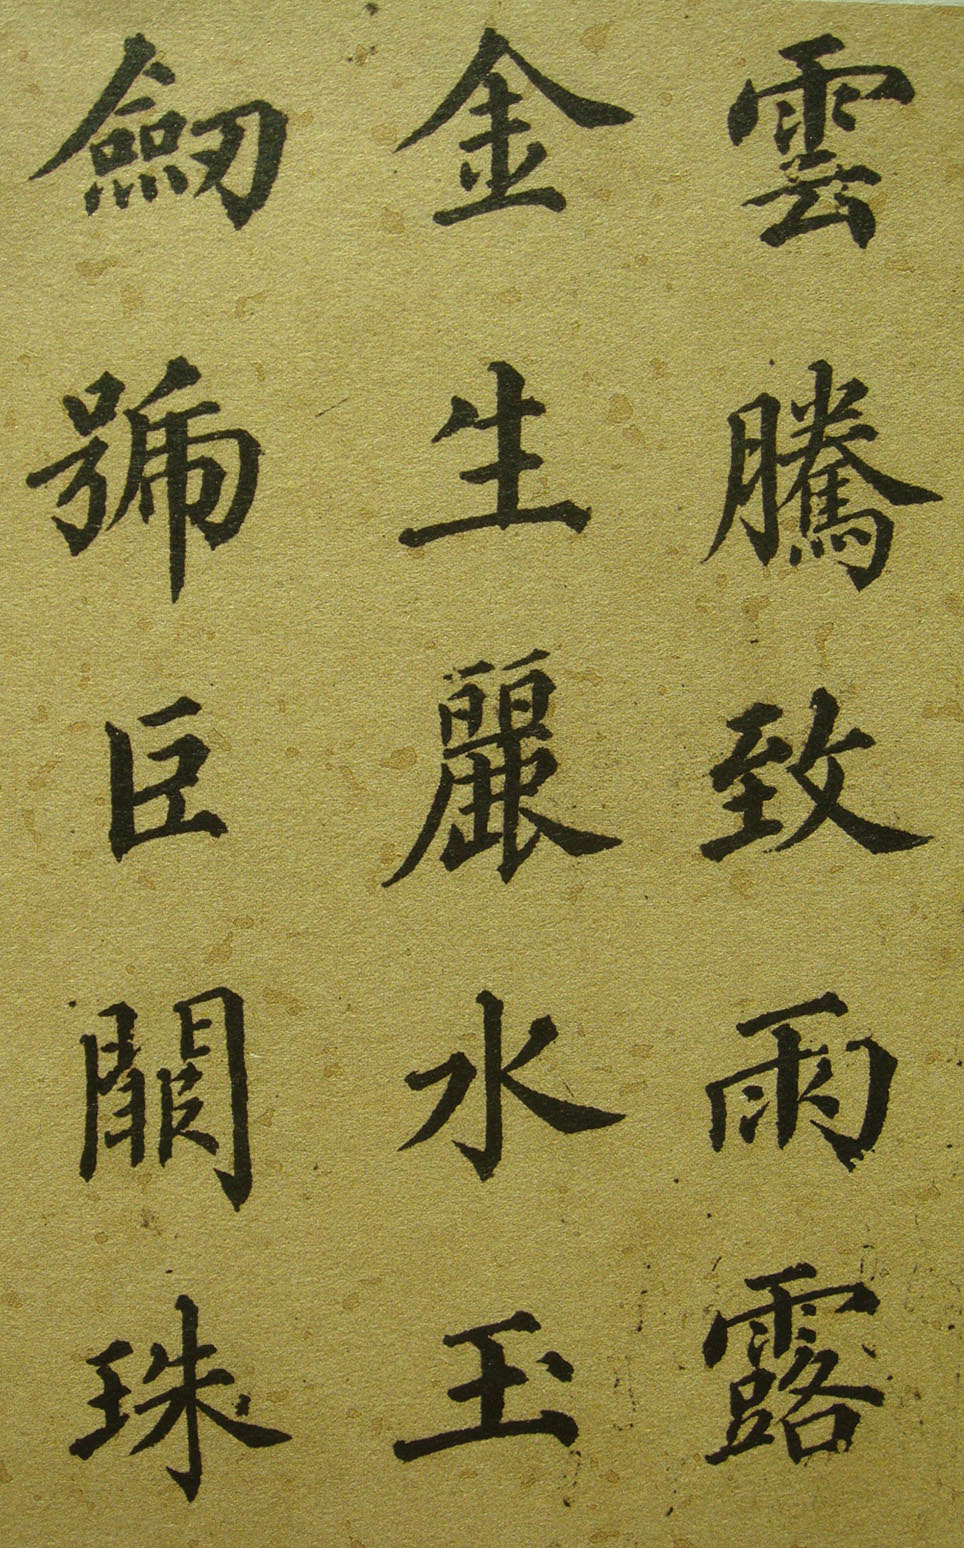 雲騰致雨露
金生麗水玉
劒號巨闕珠